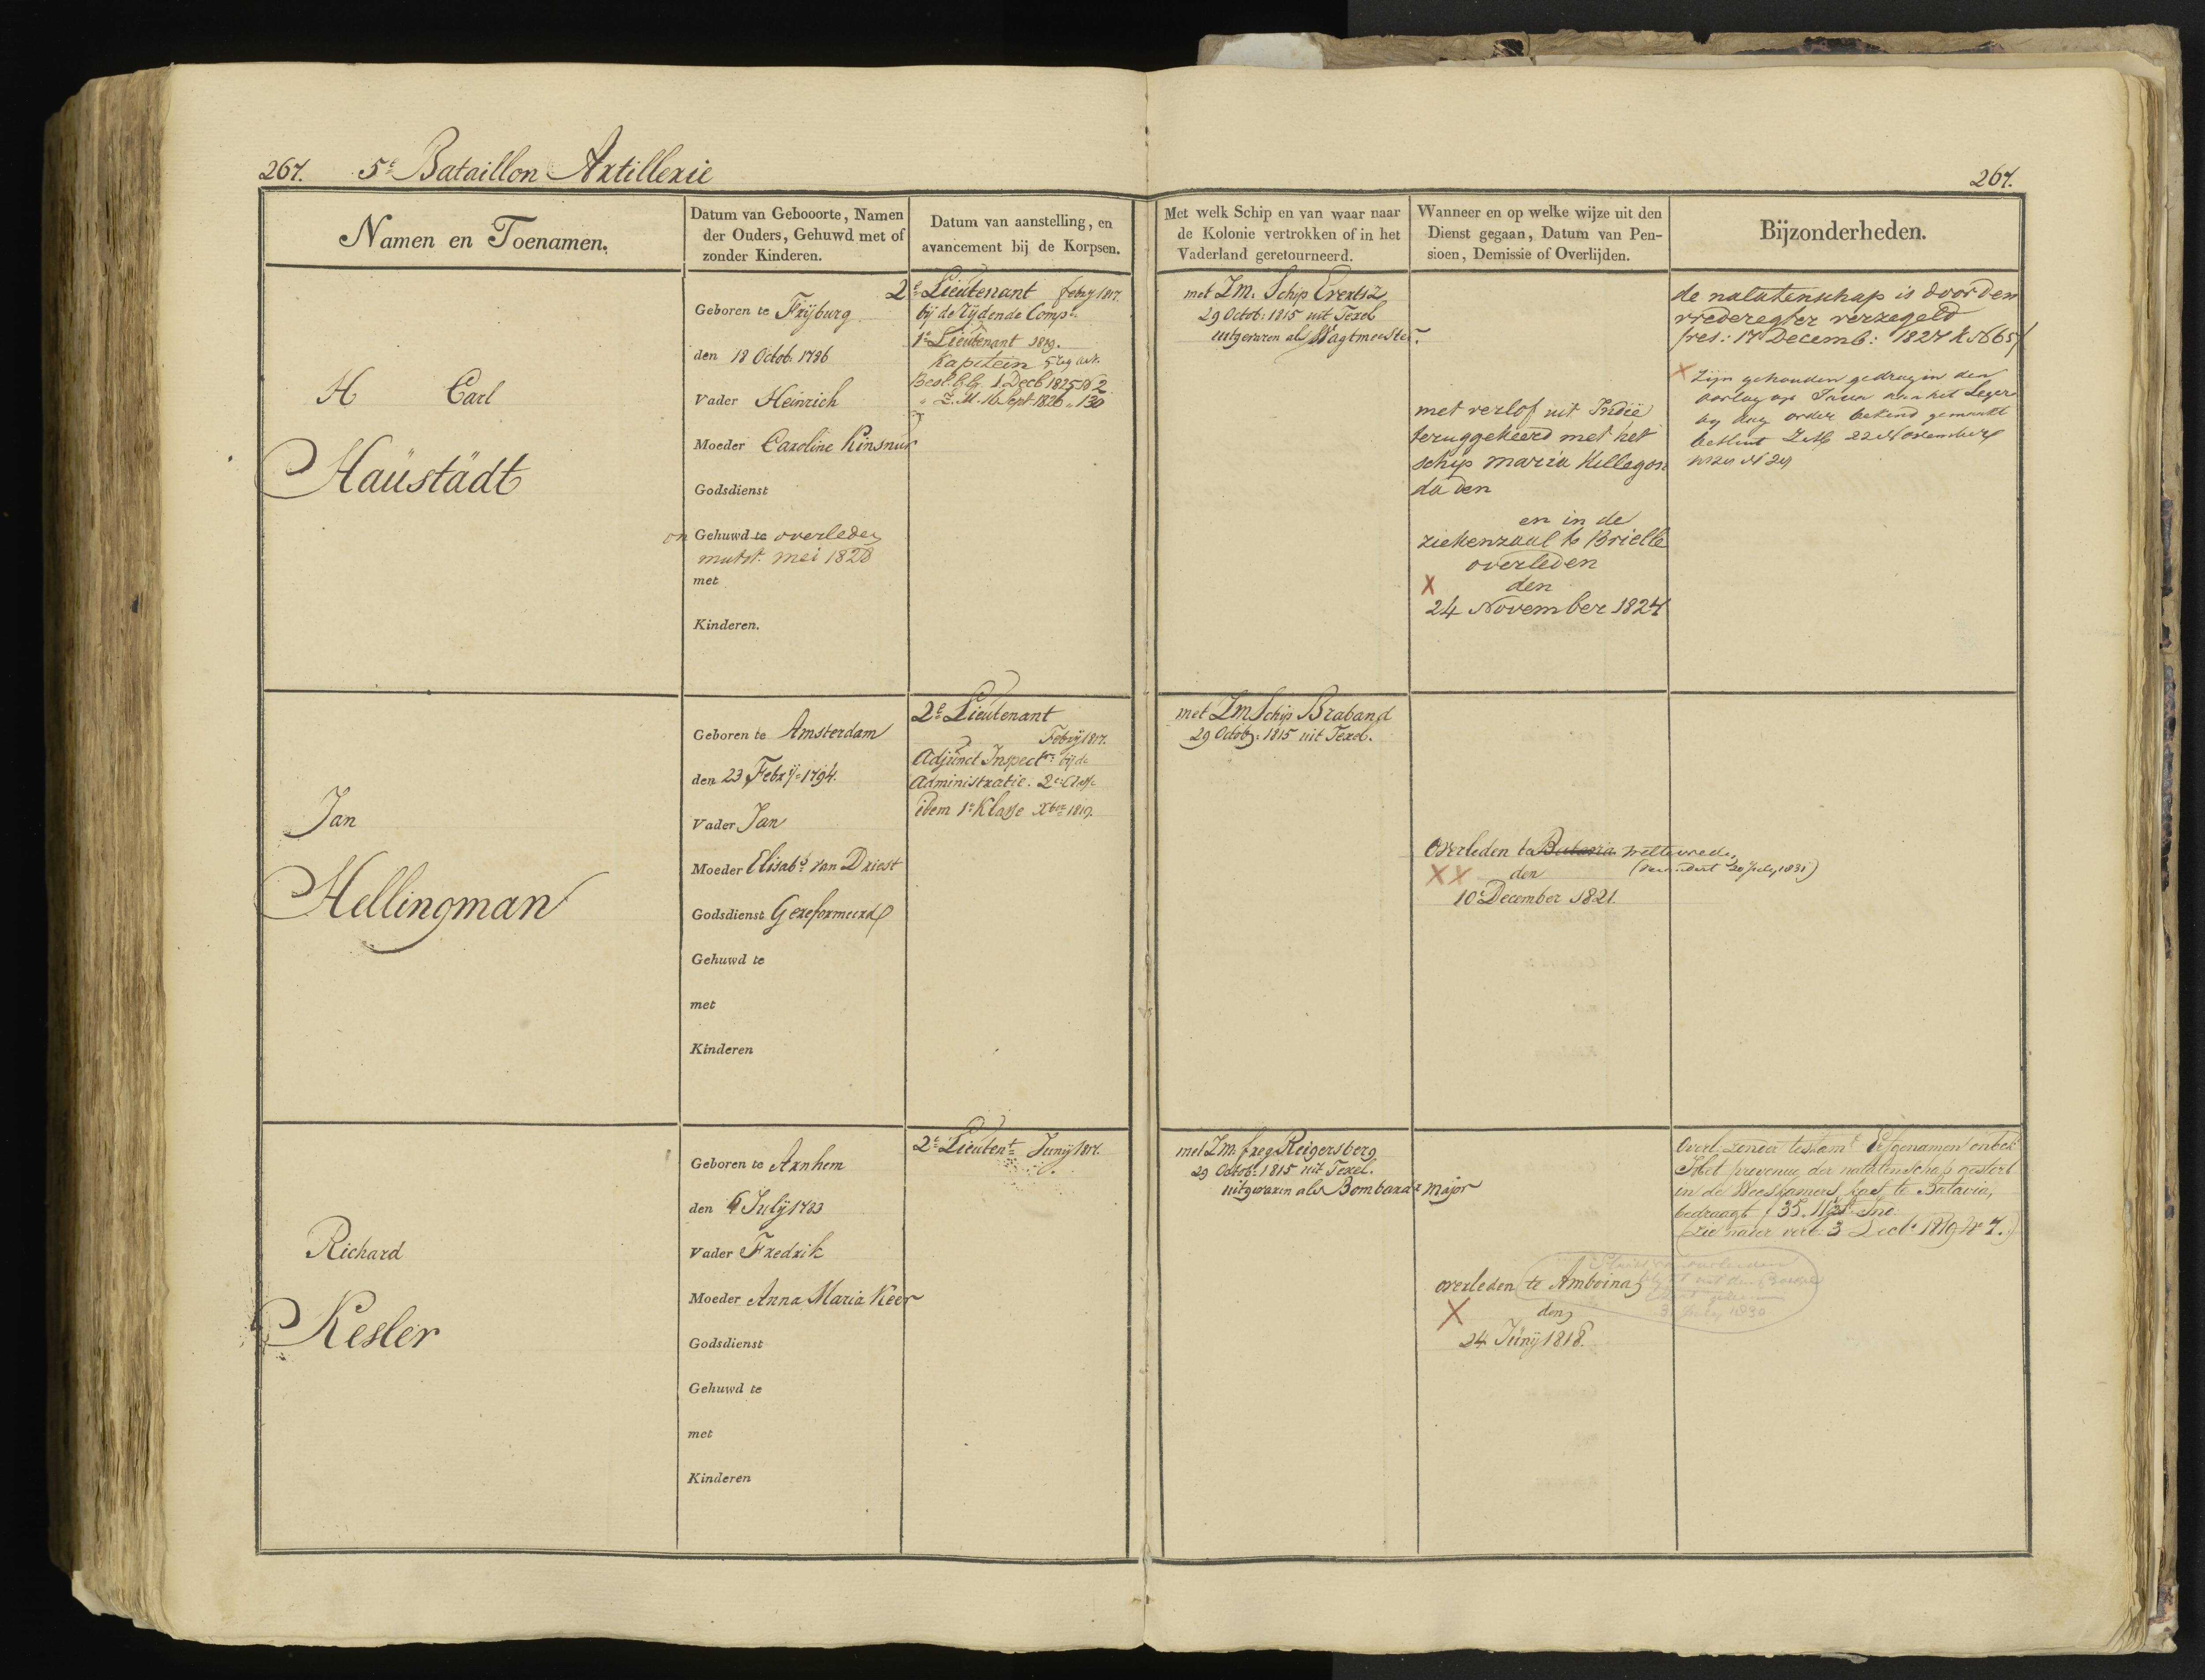 267. 5e Bataillon Artillerie
267.
Namen en Toenamen.
Datum van Gebooorte, Namen
der Ouders, Gehuwd met of
zonder Kinderen.
Datum van aanstelling, en
avancement bij de Korpsen.
Met welk Schip en van waar naar
de Kolonie vertrokken of in het
Vaderland geretourneerd.
Wanneer en op welke wijze uit den
Dienst gegaan, Datum van Pen-
sioen, Demissie of Overlijden.
Bijzonderheden.
H Carl
Haüstädt
Geboren te Frijburg
den 18 Octob. 1786
Vader Heinrich
Moeder Caroline Kinsnur
Godsdienst
on Gehuwd te overleden
mutst. mei 1828
met
Kinderen.
2e Lieutenant febry 1817.
bij de Rijdende Compe
1e Lieutenant 1819.
Kapitein 5 reg art.
Besl. G.G. 1 Decb 1825 No 2
" Z.M. 16 Sept 1826 " 130
met Zm. Schip Evertsz
29 Octob: 1815 uit Texel
uitgevaren als Wagtmeester.
met verlof uit Indië
teruggekeerd met het
schip maria Hillegon
da den
en in de
ziekenzaal te Brielle
overleden
X den
24 November 1827
de nalatenschap is door den
vrederegter verzegeld
res: 17 Decemb: 1827 No 65
X Zijn gehouden gedrag in den
oorlog op Java aan het Leger
by dag order bekend gemaakt
besluit 22 November
No 29
Jan
Hellingman
Geboren te Amsterdam
den 23 Febrij 1794.
Vader Jan
Moeder Elisabt van Driest
Godsdienst Gereformeerd
Gehuwd te
met
Kinderen
2e Lieutenant
Febrij 1817.
Adjunct Inspectr bij de
Administratie. 2e Classe
idem 1e Klasse Xber 1819.
met Zm Schip Braband
29 Octob: 1815 uit Texel.
Overleden te Batavia Weltevrede,
XX den 20 July 1831)
10e December 1821.
Richard
Kesler
Geboren te Arnhem
den 6 Julij 1783
Vader Fredrik
Moeder Anna Maria Keer
Godsdienst
Gehuwd te
met
Kinderen
2e Lieutent Junij 1817.
met Zm. freg Reigersberg
29 Octob: 1815 uit Texel.
uitgevaren als Bombardr Major
overleden te Amboina
X den
24 Junij 1818.
Overl. zonder testamt Erfgenamen onbek
Het prevenue der nalatenschap gestort
in de Weeskamers kas te Batavia,
bedraagt f 35.
(zie nader verb. 3 Decb. 1819 No 7.)
1830